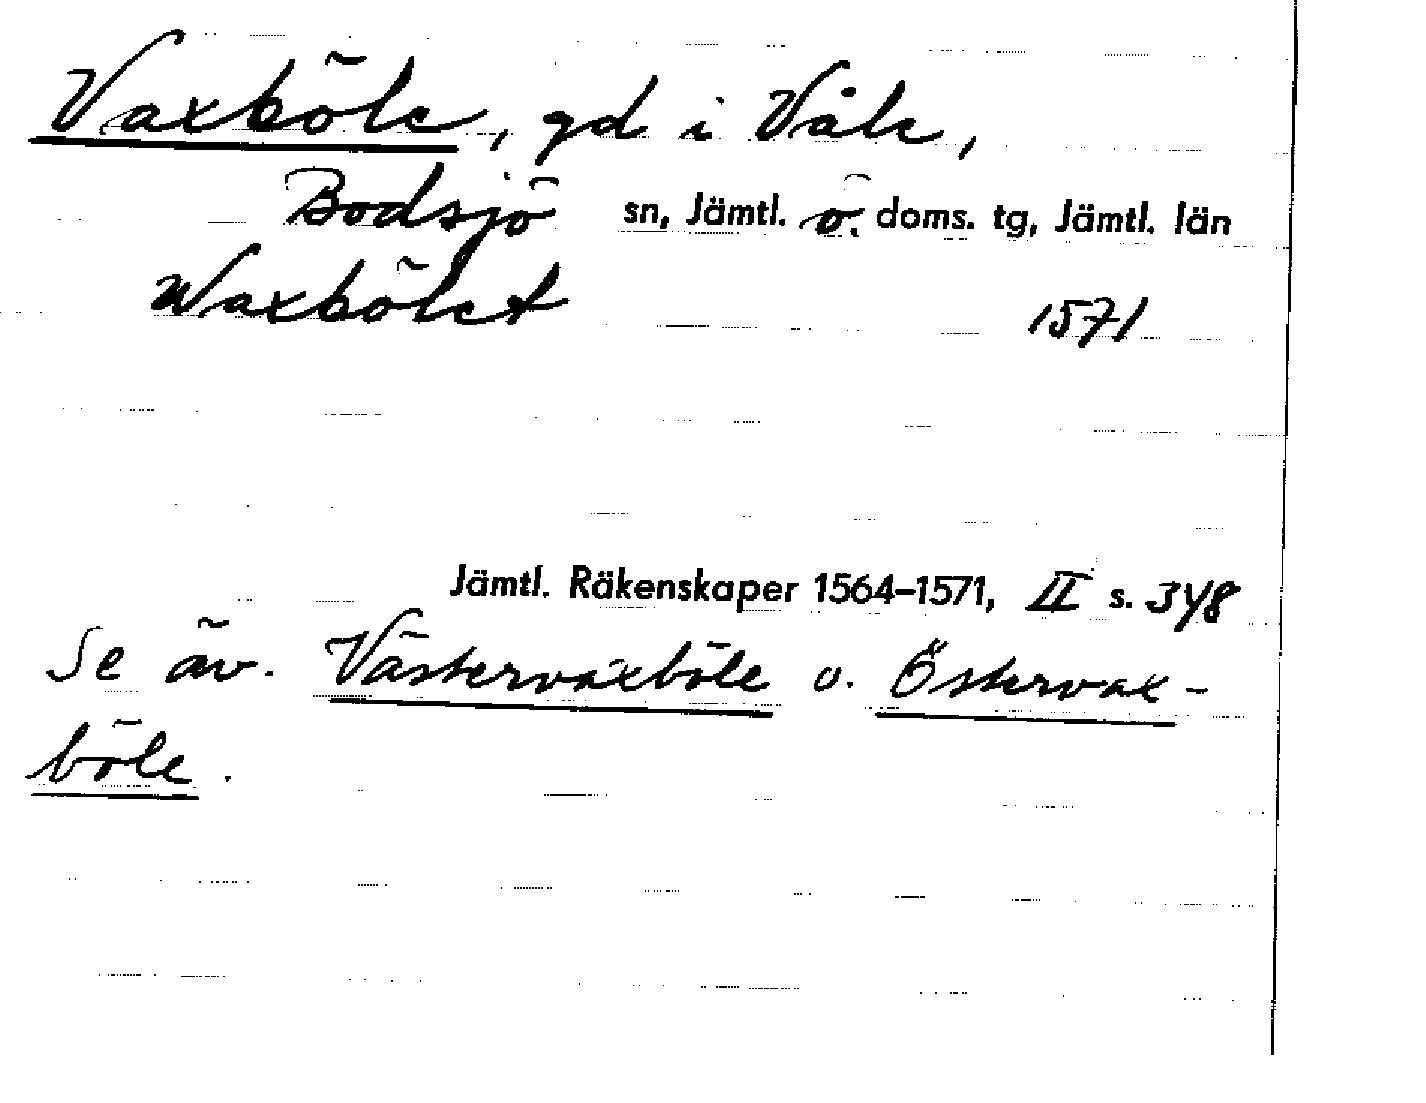 Vaxböle, gd i Våle,
Bodsjö sn, Jämtl. ö. doms. tg, Jämtl. län
Waxbölet 1571
Jämtl. Räkenskaper 1564–1571, II s. 348
Se äv. Västervaxböle o. Östervax-
böle.